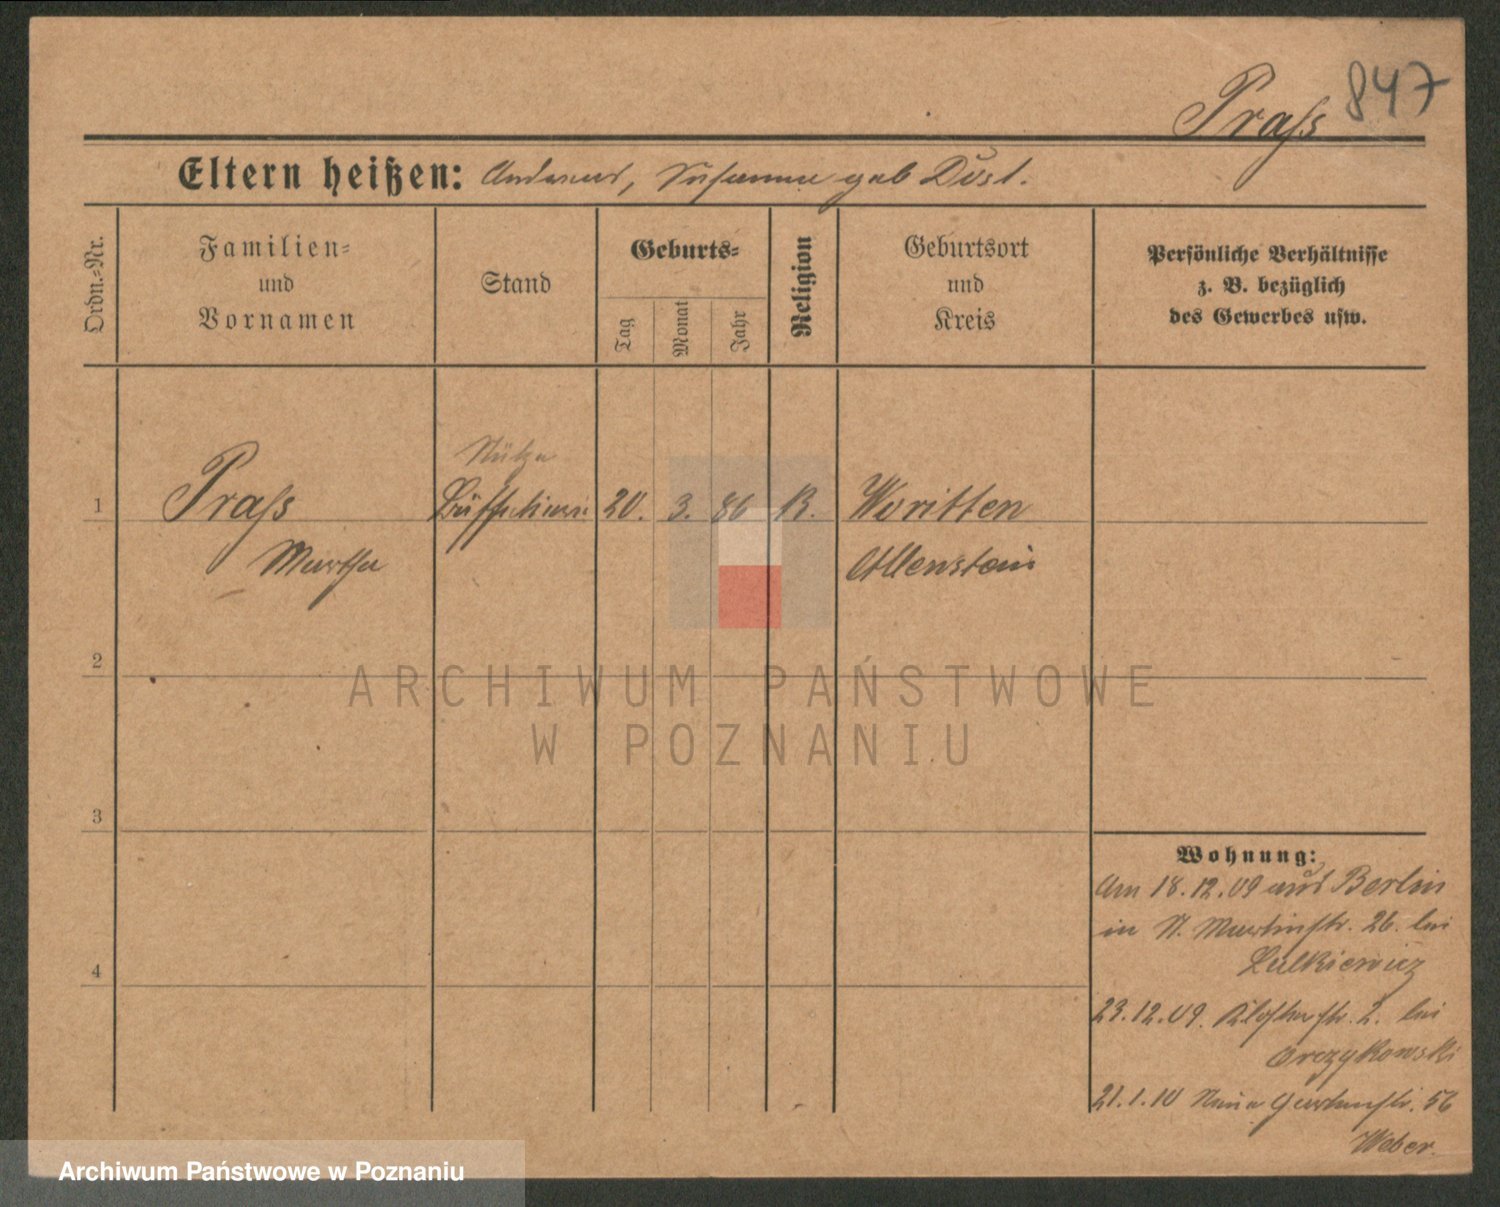 847
Praſs
Eltern heißen: Andreas, Susanna geb Dost.
Ordn.-Nr.
Familien-
und
Vornamen
Stand
Geburts-
Tag
Monat
Jahr
Religion
Geburtsort
und
Kreis
Persönliche Verhältnisse
z. B. bezüglich
des Gewerbes usw.
Stütze
1 Praſs 20. 3. 86 K. Woritten
Martha Allenstein
2
3
4
Wohnung:
Am 18.12.09 aus Berlin
in St. Martinstr. 26. bei
Lulkiewicz
23.12.09. Klosterstr. 2. bei
Orczykowski
21.1.10 Neue Gartenstr. 56
Weber.
ARCHIWUM PAŃSTWOWE
W POZNANIU
Archiwum Państwowe w Poznaniu